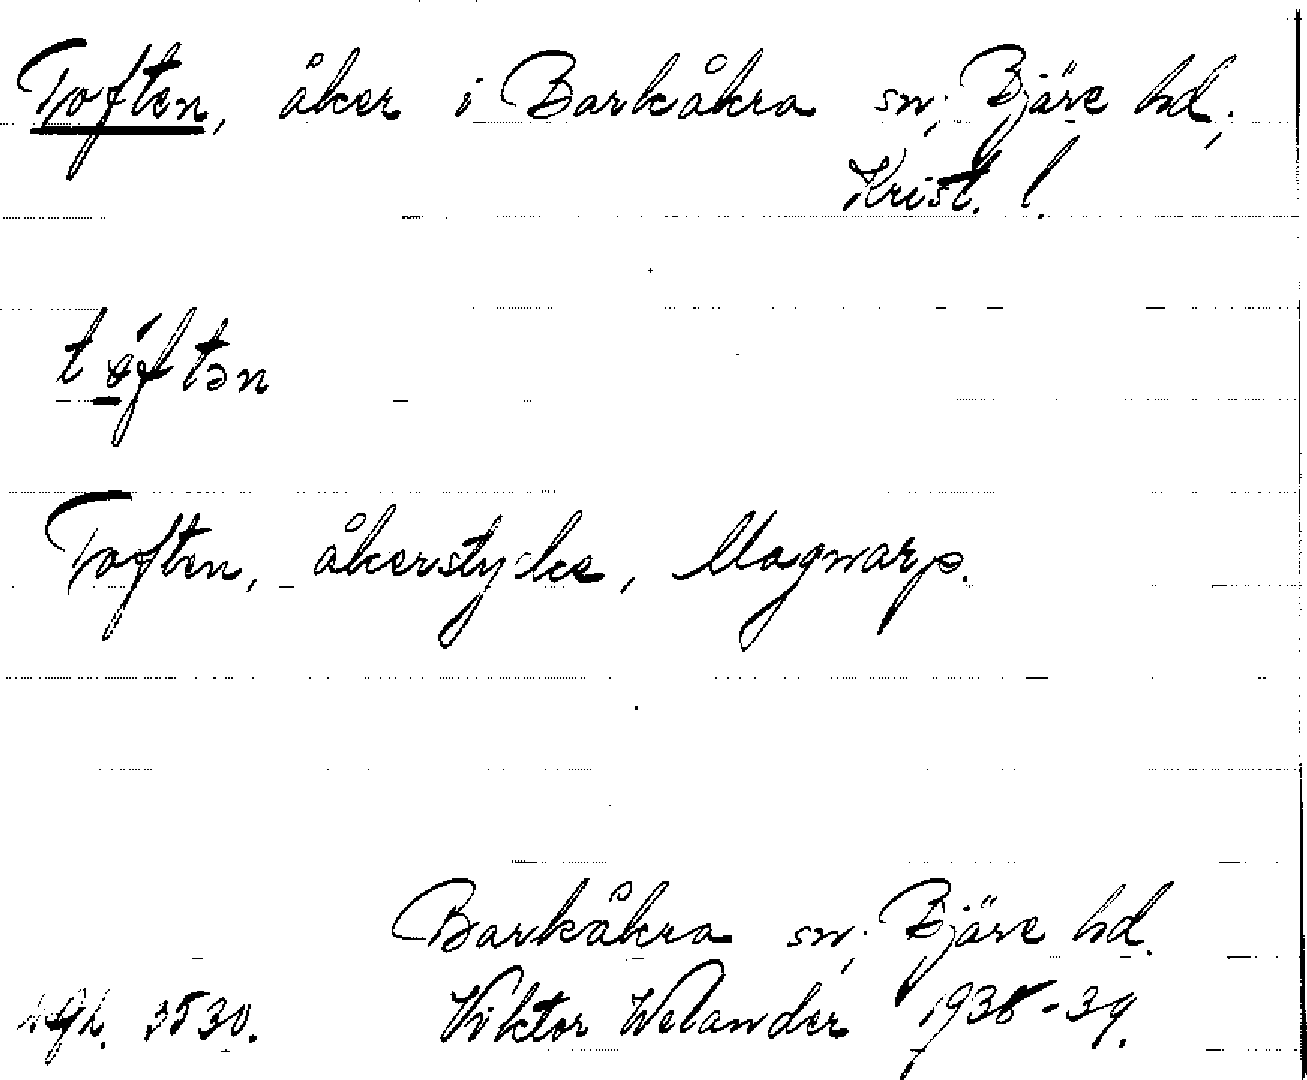 Toften, åker i Barkåkra sn; Bjäre hd;
Krist. l.
Toften, åkerstycke, Magnarp.
Barkåkra sn; Bjäre hd.
3530. Viktor Welander 1938-39.